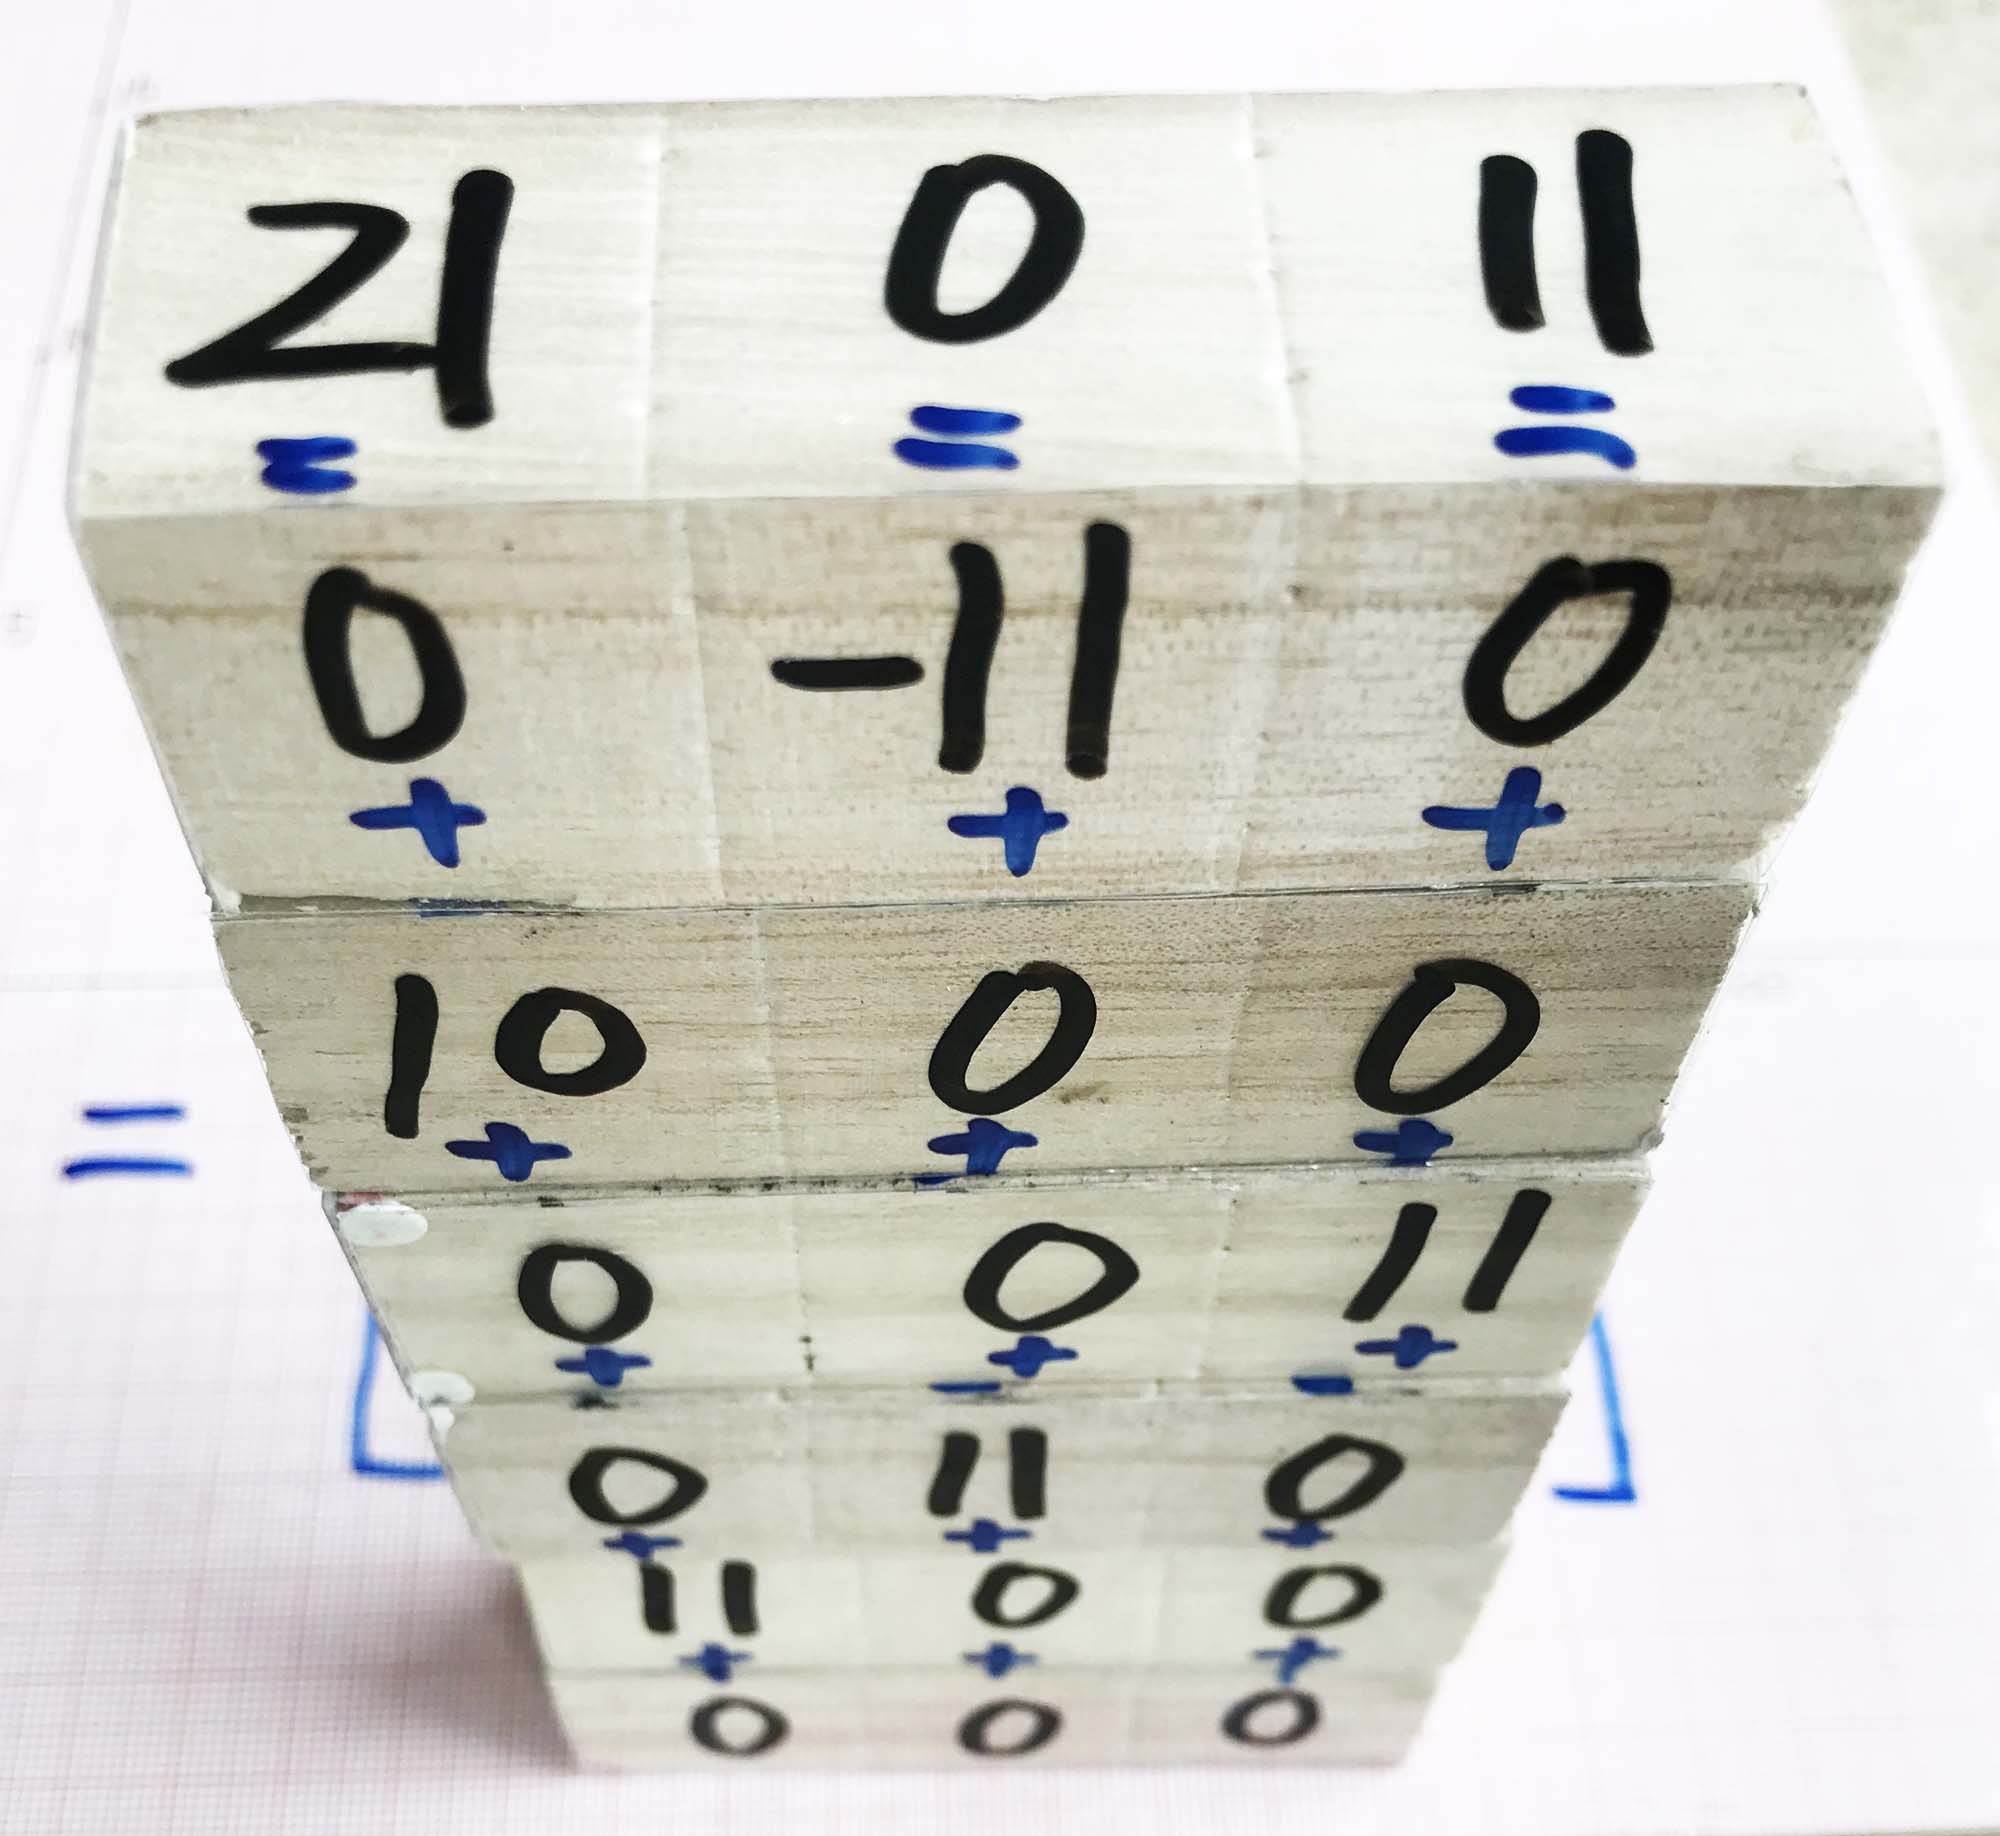 21 0 11
= = =
0 -11 0
+ + +
10 0 0
+ + +
0 0 11
+ + +
0 11 0
+ + +
11 0 0
+ + +
0 0 0
=
[ ]